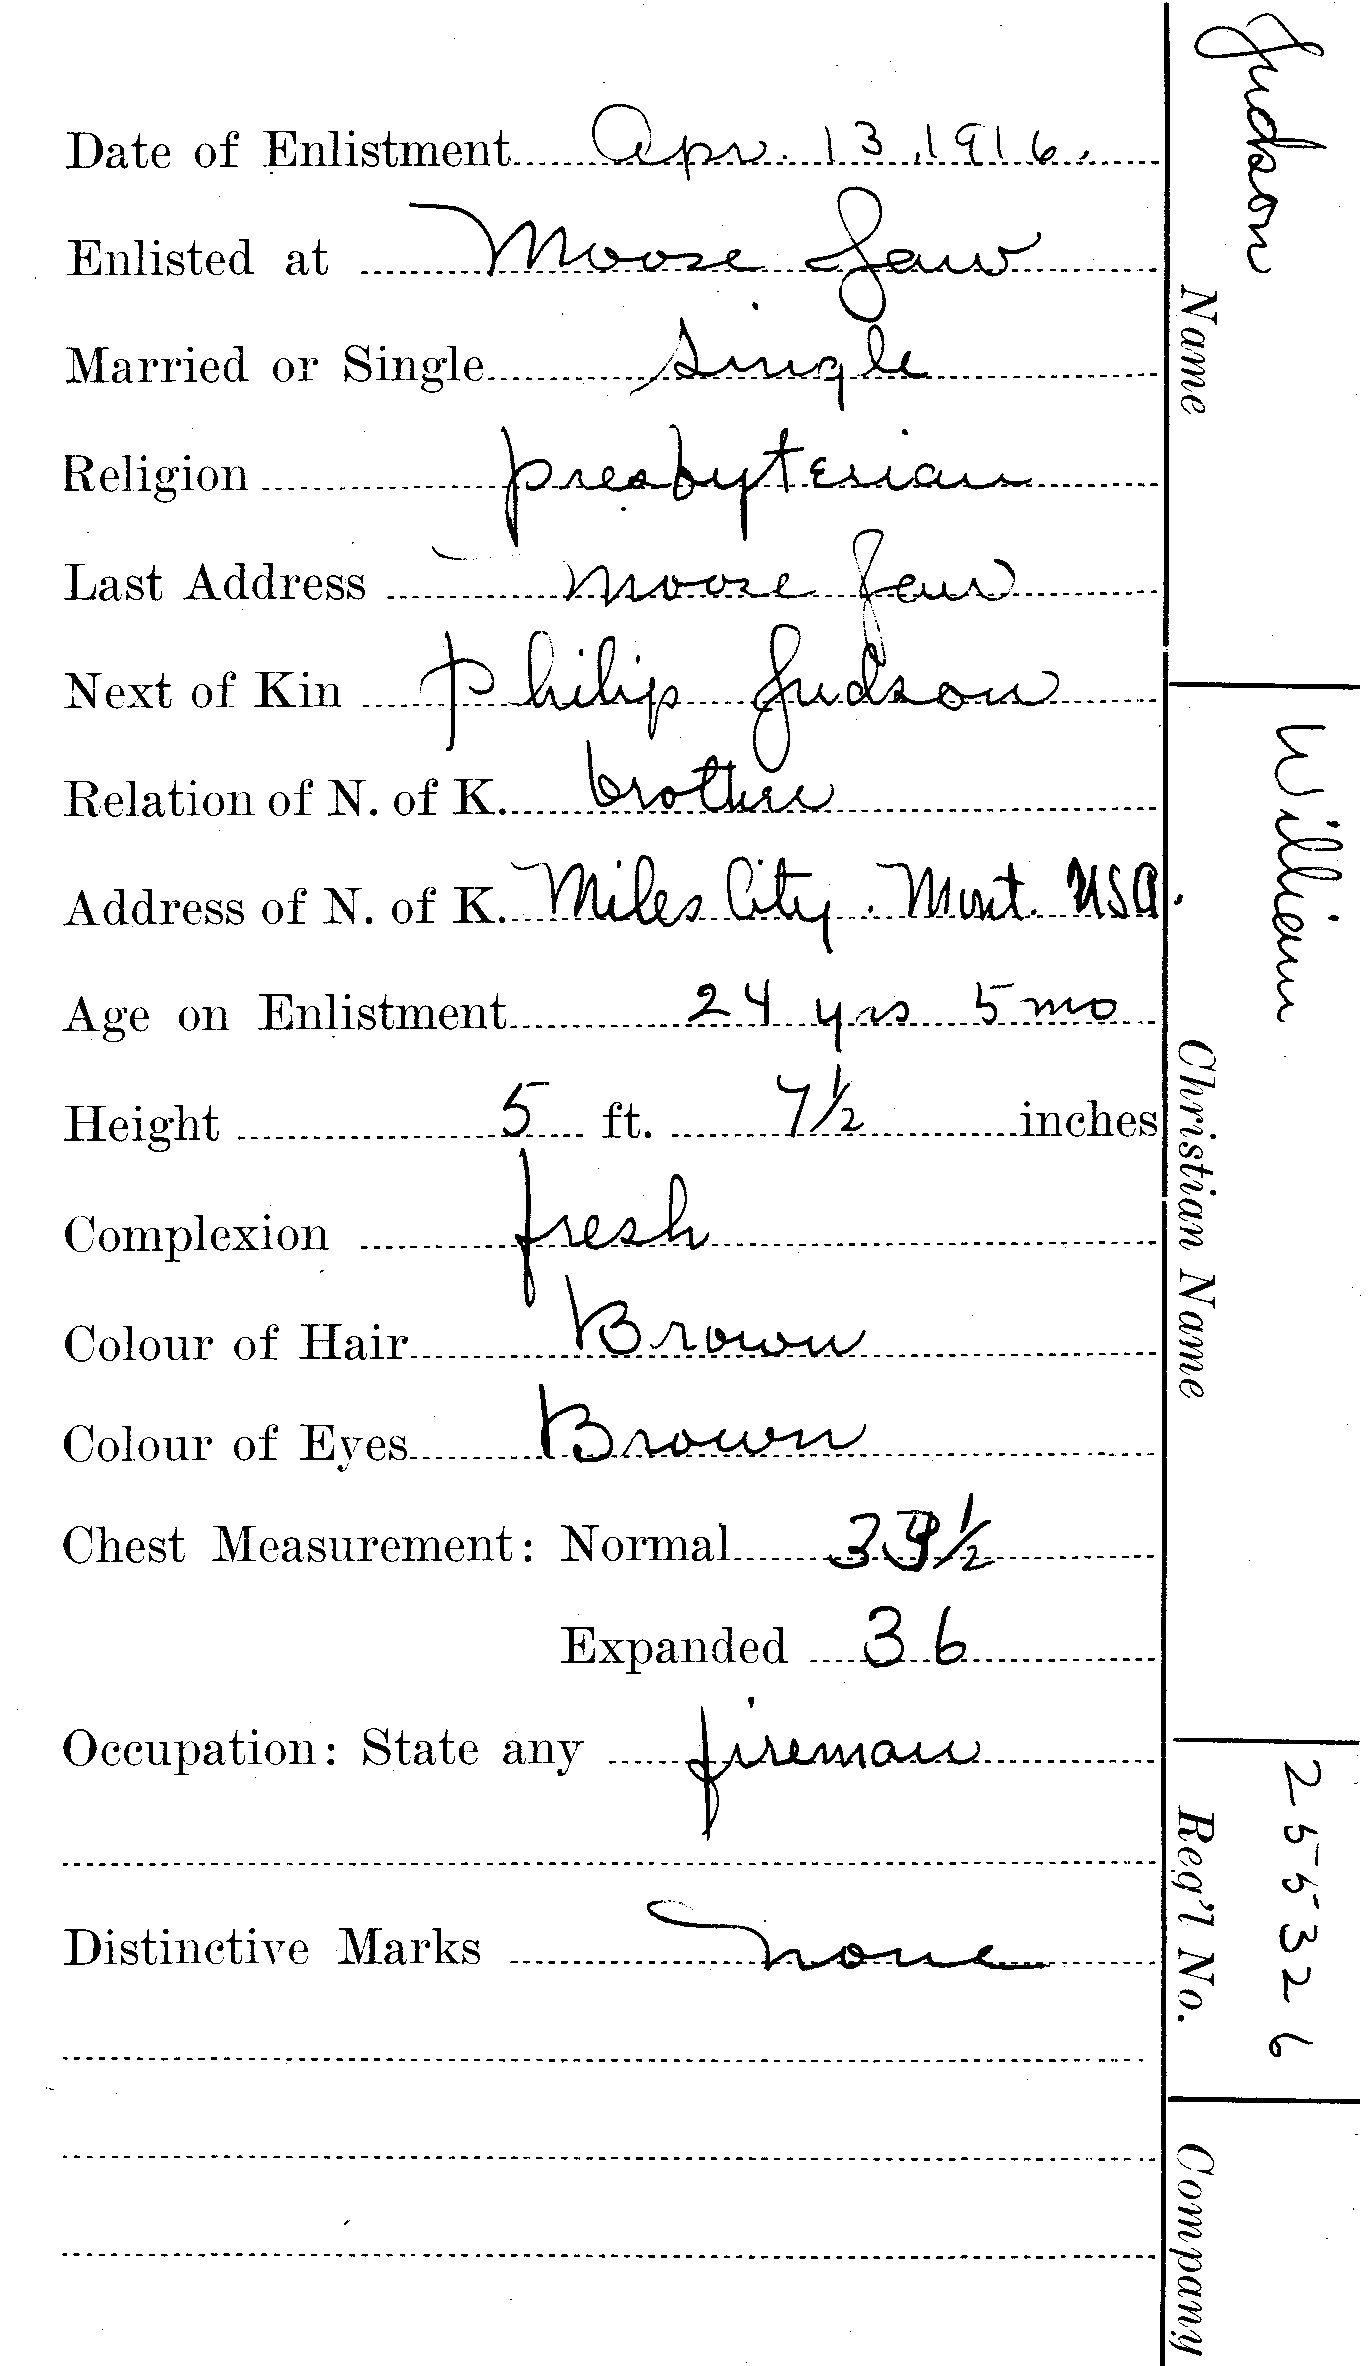 Date of Enlistment Apr. 13, 1916.
Enlisted at Moose Jaw
Married or Single single
Religion presbyterian
Last Address Moose Jaw
Next of Kin Philip Judson
Relation of N. of K. brother
Address of N. of K. Miles City. Mont. USA.
Age on Enlistment 24 yrs 5 mo
Height 5 ft. 7½ inches
Complexion fresh
Colour of Hair Brown
Colour of Eyes Brown
Chest Measurement: Normal ½
Expanded 36
Occupation: State any fireman
Distinctive Marks none
Judson
Name
William
Christian Name
255326
Reg'l No.
Company